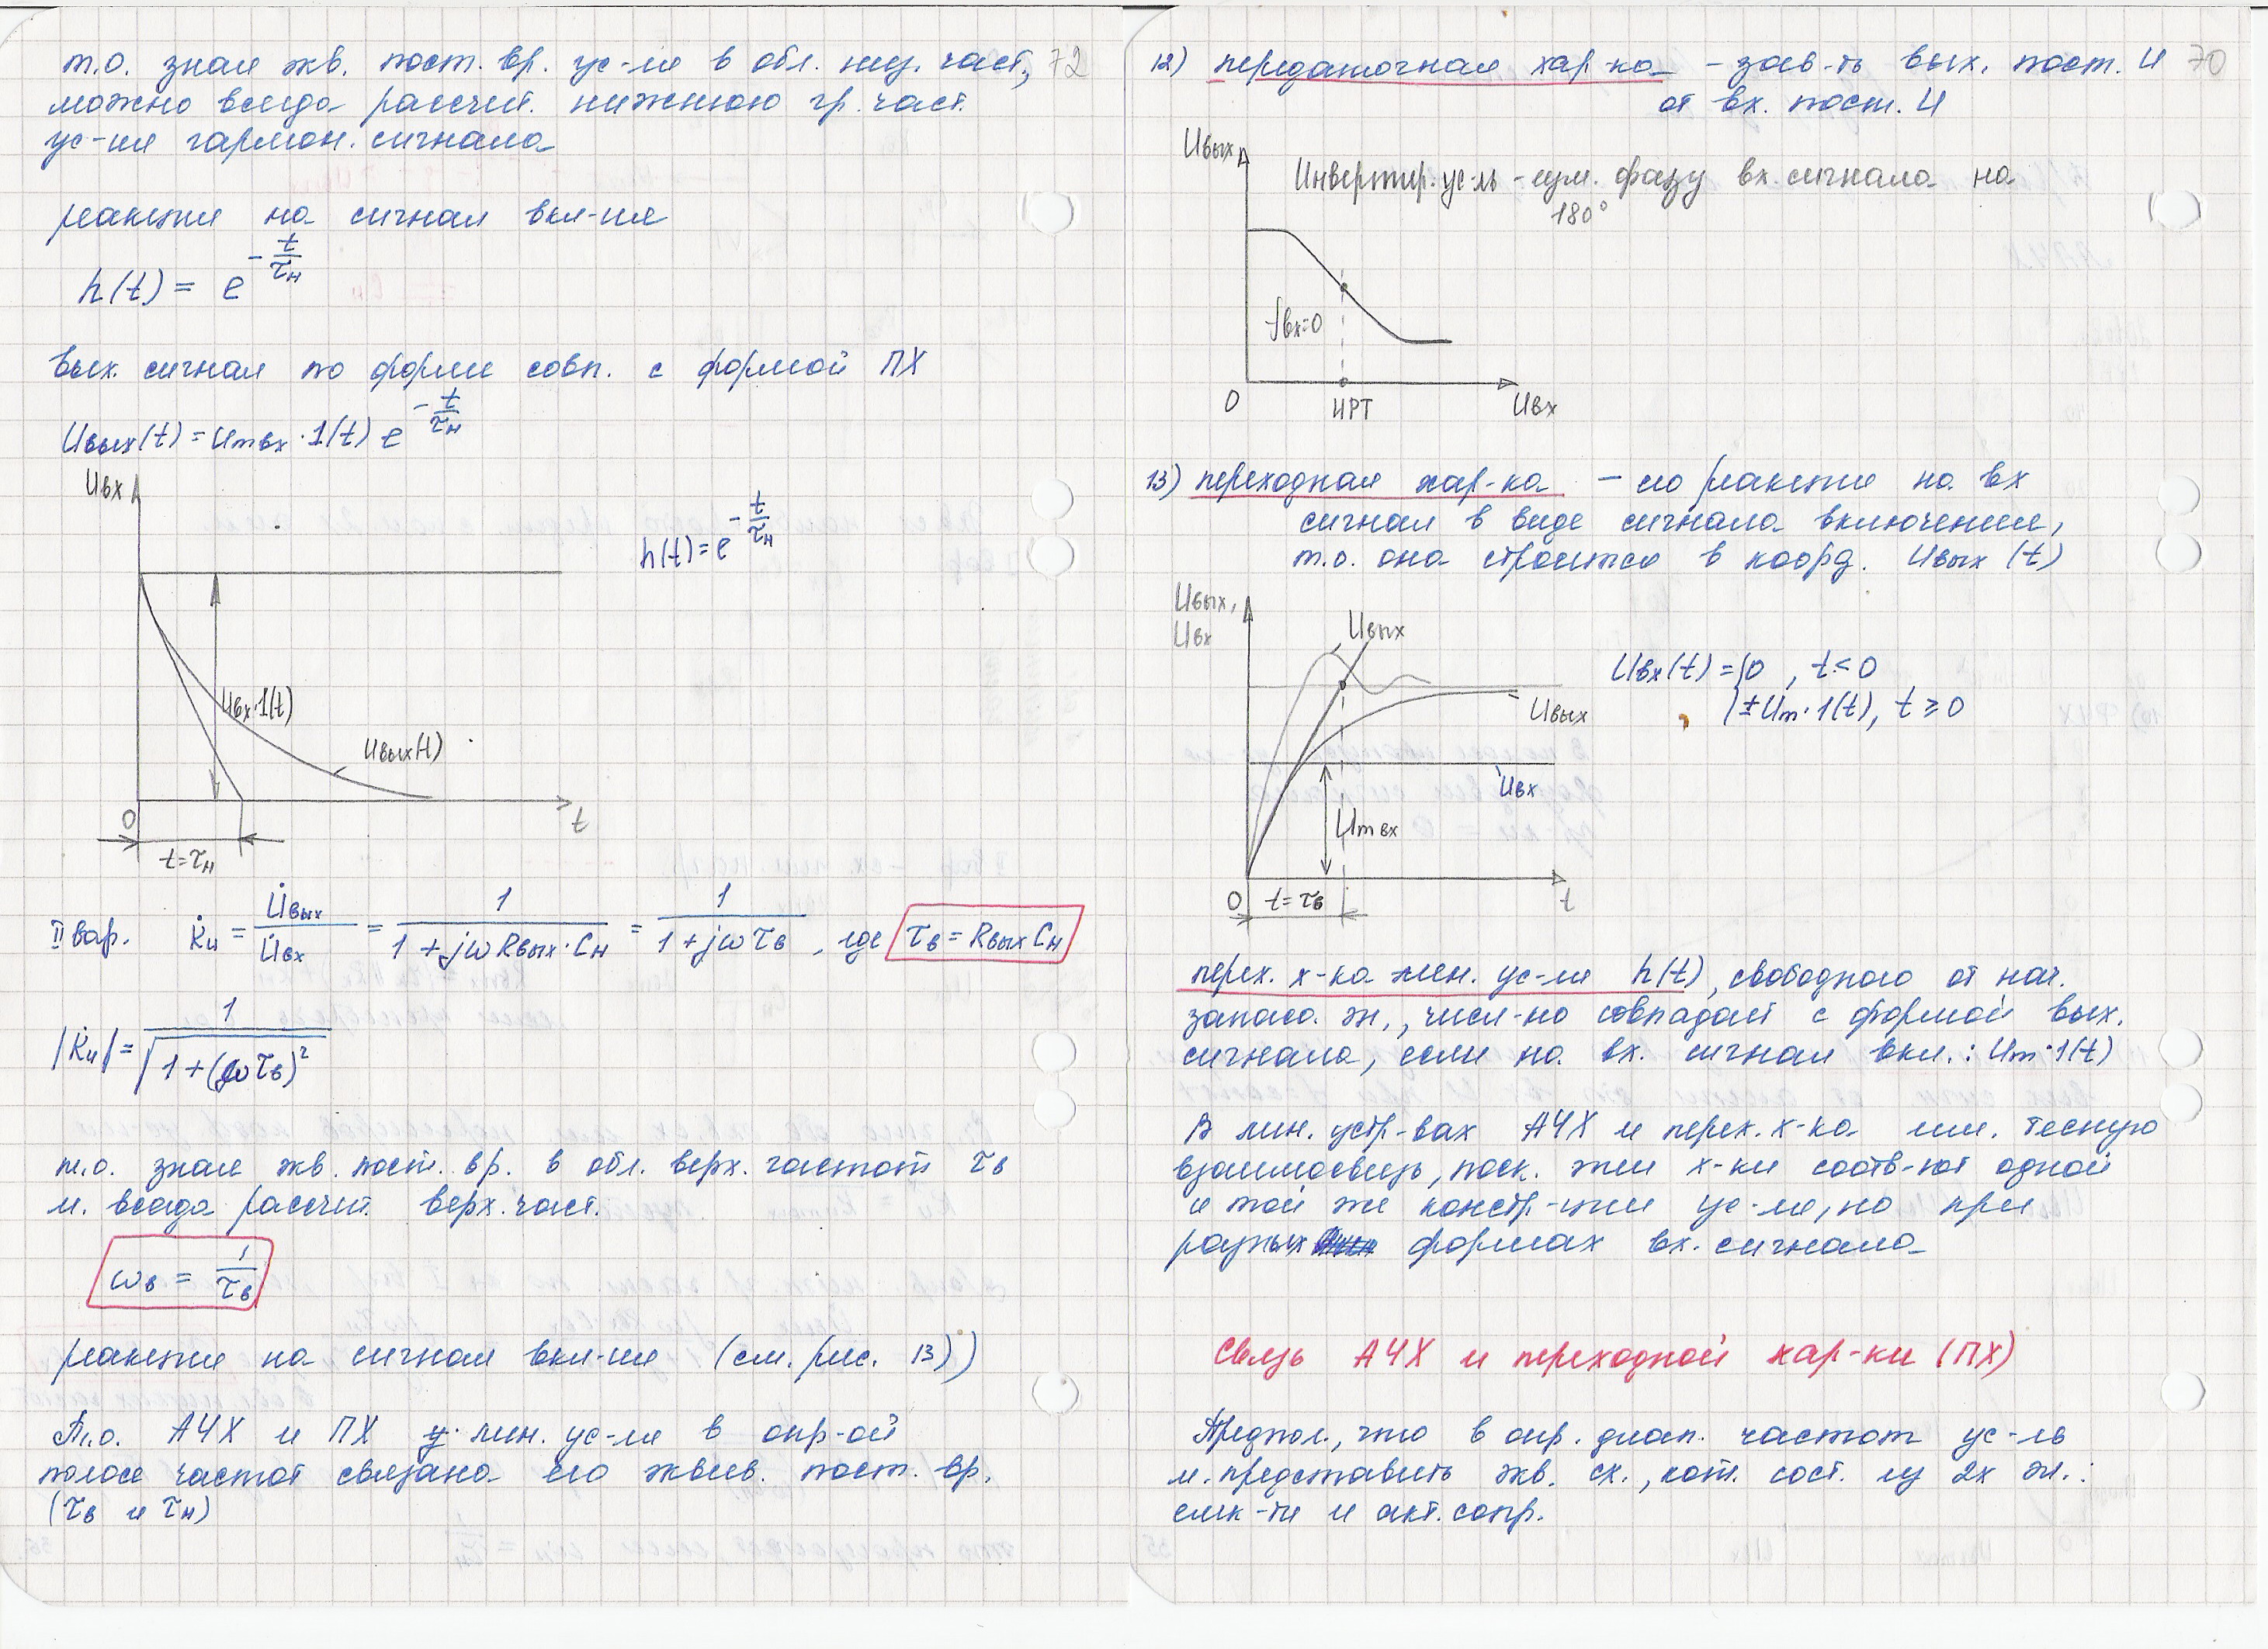 т.о. зная экв. пост. вр. ус-ля в обл. низ. част., 72
можно всегда рассчит. нижнюю гр. част.
ус-ия гармон. сигнала
реакция на сигнал вкл-ия
h(t) = e^(-t/τн)
вых. сигнал по форме совп. с формой ПХ
Uвых(t) = Umвх · 1(t) e^(-t/τн)
Uвх
h(t) = e^(-t/τн)
Uвх·1(t)
Uвых(t)
0
t
t=τн
II вар. K̇и = U̇вых/U̇вх = 1/(1+jωRвых·Cн) = 1/(1+jωτв), где τв = RвыхCн
|K̇и| = 1/√(1+(ωτв)²)
т.о. зная экв. пост. вр. в обл. верх. частот τв
м. всегда рассчит. верх. част.
ωв = 1/τв
реакция на сигнал вкл-ия (см. рис. 13))
Т.о. АЧХ и ПХ у лин. ус-ля в опр-ой
полосе частот связана его эквив. пост. вр.
(τв и τн)
12) передаточная хар-ка – зав-ть вых. пост. U 70
от вх. пост. U
Uвых
Инвертир. ус-ль – фазу вх сигнала на
180°
fвх=0
0
ИРТ
Uвх
13) переходная хар-ка – его реакция на вх
сигнал в виде сигнала включения,
т.о. она строится в коорд. Uвых (t)
Uвых,
Uвх
Uвых
Uвх(t) = {0, t<0
{±Um·1(t), t≥0
Uвых
Uвх
Um вх
0
t=τв
t
перех. х-ка лин. ус-ля h(t), свободного от нач.
запаса эн., числ-но совпадает с формой вых.
сигнала, если на вх. сигнал вкл.: Um·1(t)
В лин. устр-вах АЧХ и перех. х-ка им. тесную
взаимосвязь, поск. эти х-ки соотв-ют одной
и той же констр-ции ус-ля, но при
разных формах вх. сигнала
Связь АЧХ и переходной хар-ки (ПХ)
Предпол., что в опр. диап. частот ус-ль
м. представить экв. сх., кот. сост. из 2х эл.:
емк-ти и акт. сопр.